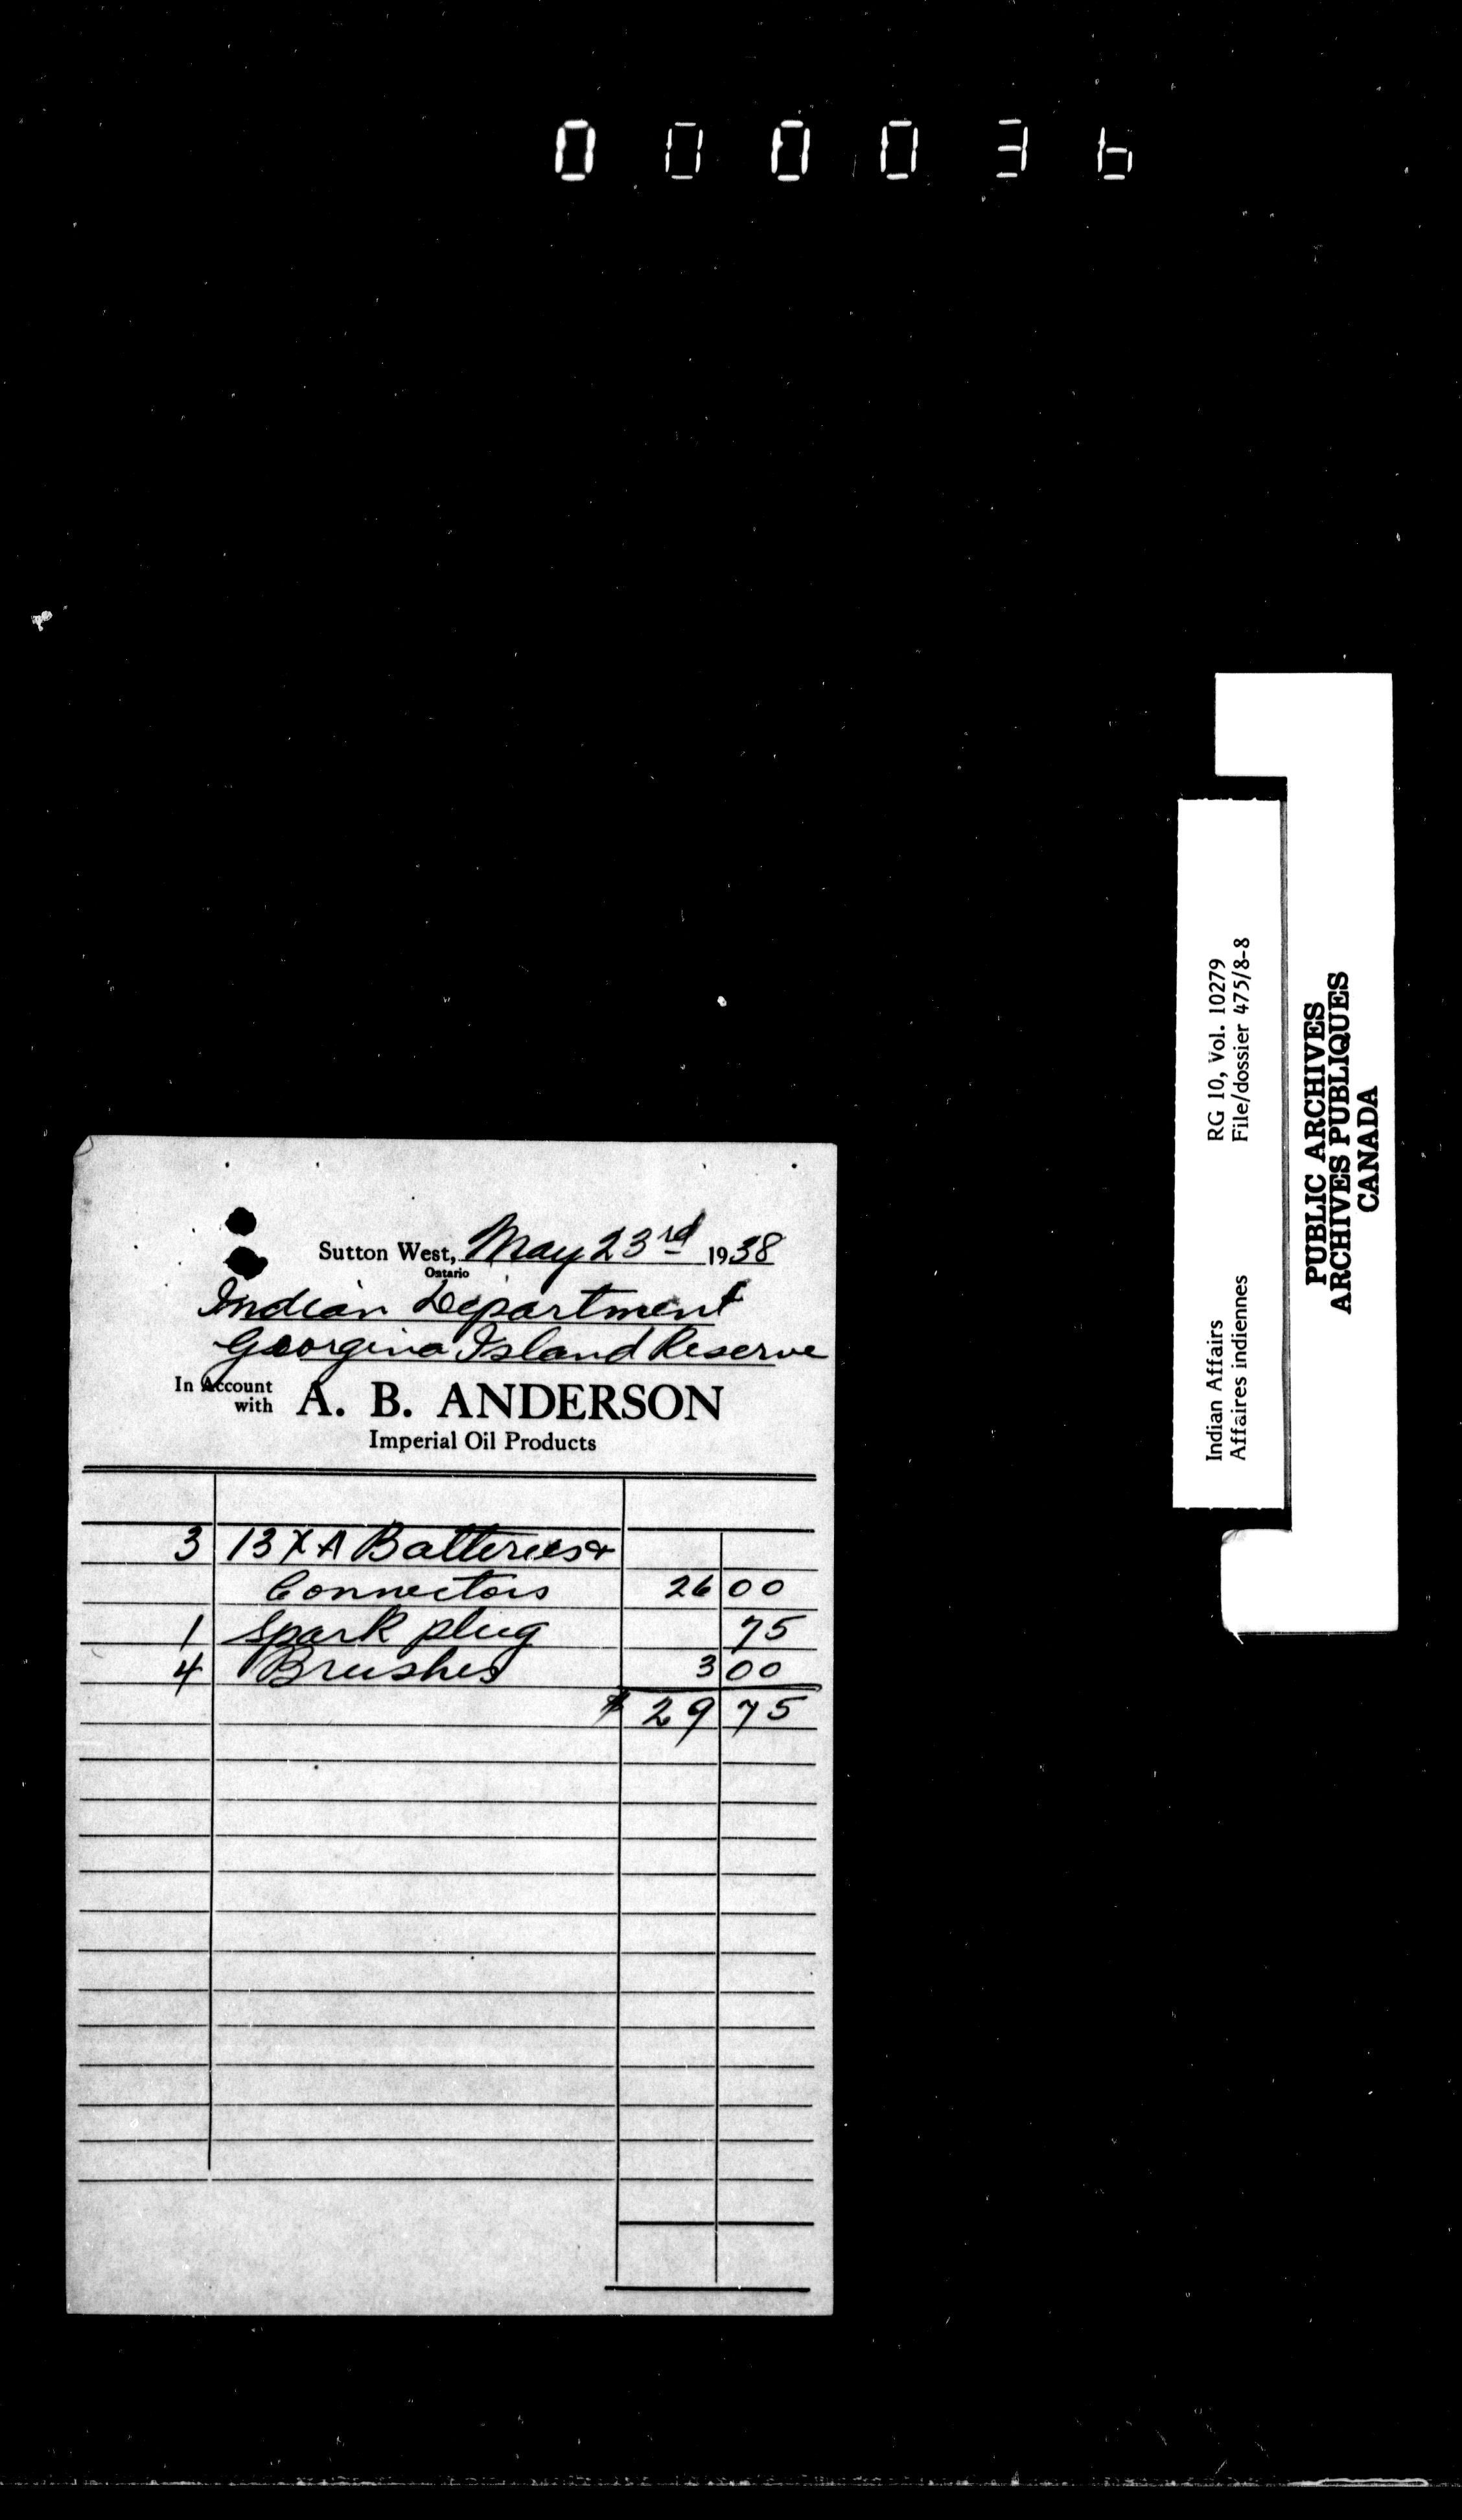 000036
Sutton West, May 23rd 1938
Ontario
Indian Department
Georgina Island Reserve
In Account with A. B. ANDERSON
Imperial Oil Products
3 13 X A Batteries &
Connectors 26 00
1 Spark plug 75
4 Brushes 3 00
$ 29 75
Indian Affairs RG 10, Vol. 10279
Affaires indiennes File/dossier 475/8-8
PUBLIC ARCHIVES
ARCHIVES PUBLIQUES
CANADA